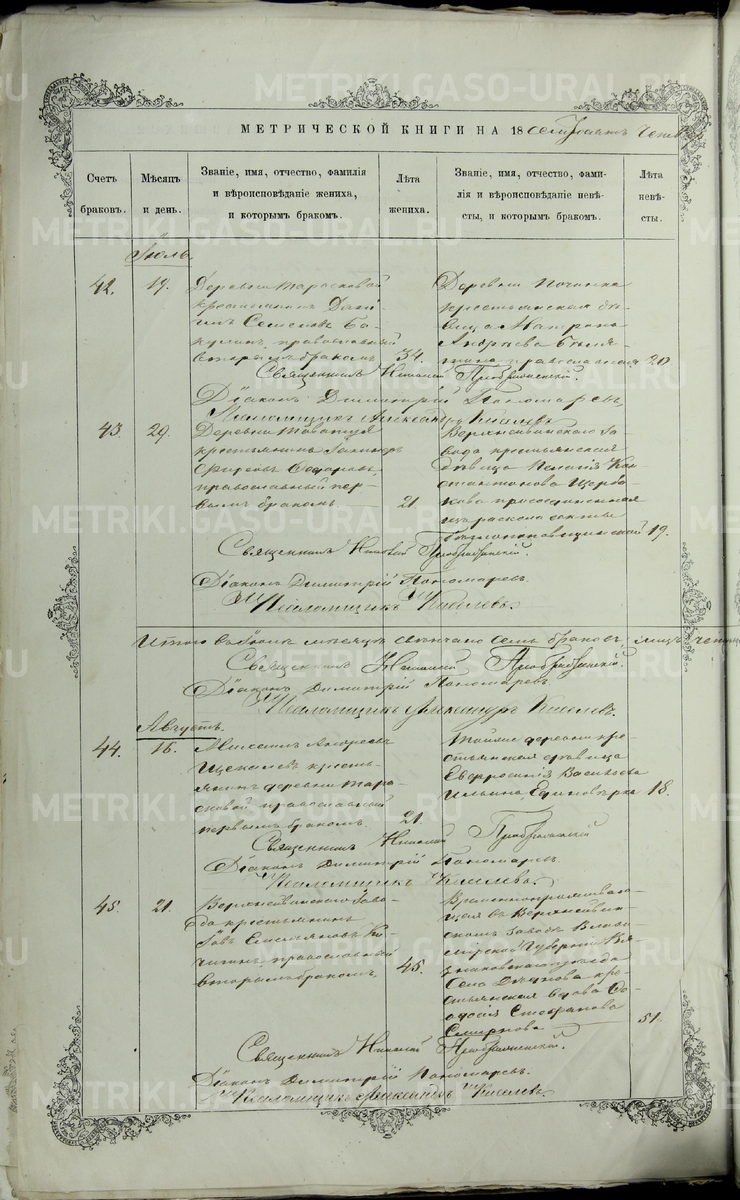 МЕТРИЧЕСКОЙ КНИГИ НА 18 семьдесятъ четв
Счетъ браковъ.
Мѣсяцъ и день.
Званіе, имя, отчество, фамилія
и вѣроисповѣданіе жениха,
и которымъ бракомъ.
Лѣта
жениха.
Званіе, имя, отчество, фами-
лія и вѣроисповѣданіе невѣ-
сты, и которымъ бракомъ.
Лѣта
невѣ-
сты.
Іюль.
42.
19.
Деревни Тарасковой
крестьянинъ
Семеновъ
православный
вторымъ бракомъ
34.
Деревни Починка
крестьянская дѣ-
вица
Андреева
православная
20
Священникъ Николай Преображенскій.
Діаконъ Димитрій Пономаревъ
Псаломщикъ Александръ Киселевъ
43.
29.
Деревни Таватуя
крестьянинъ
Ѳедоровъ
православный пер-
вымъ бракомъ
21.
Верхнейвинскаго За-
вода крестьянская
дѣвица Пелагія Кон-
стантинова Щерба-
кова присоединенная
изъ раскола секты
19.
Священникъ Николай Преображенскій.
Діаконъ Димитрій Пономаревъ.
Псаломщикъ Киселевъ.
Итого въ Іюлѣ мѣсяцѣ свѣнчано семь браковъ, лицъ четы
Священникъ Николай Преображенскій.
Діаконъ Димитрій Пономаревъ.
Псаломщикъ Александръ Киселевъ.
Августъ.
44.
16.
Михаилъ Андреевъ
кресть-
янинъ деревни Тара-
сковой православный
первымъ бракомъ.
21.
Тойже деревни кре-
стьянская дѣвица
Евфросинія Васильева
Ильина, Единовѣрка
18.
Священникъ Николай Преображенскій
Діаконъ Димитрій Пономаревъ.
Псаломщикъ Киселевъ.
45.
21.
Верхнейвинскаго Заво-
да крестьянинъ
Іовъ Емельяновъ
православный
вторымъ бракомъ
45.
Временнопроживаю-
щая въ Верхнейвин-
скомъ Заводѣ Влади-
мірской Губерніи Вя-
зниковскаго уѣзда
Села кре-
стьянская вдова Ѳе-
одосія Стефанова
Смирнова
51.
Священникъ Николай Преображенскій.
Діаконъ Димитрій Пономаревъ.
Псаломщикъ Александръ Киселевъ.
METRIKI.GASO-URAL.RU